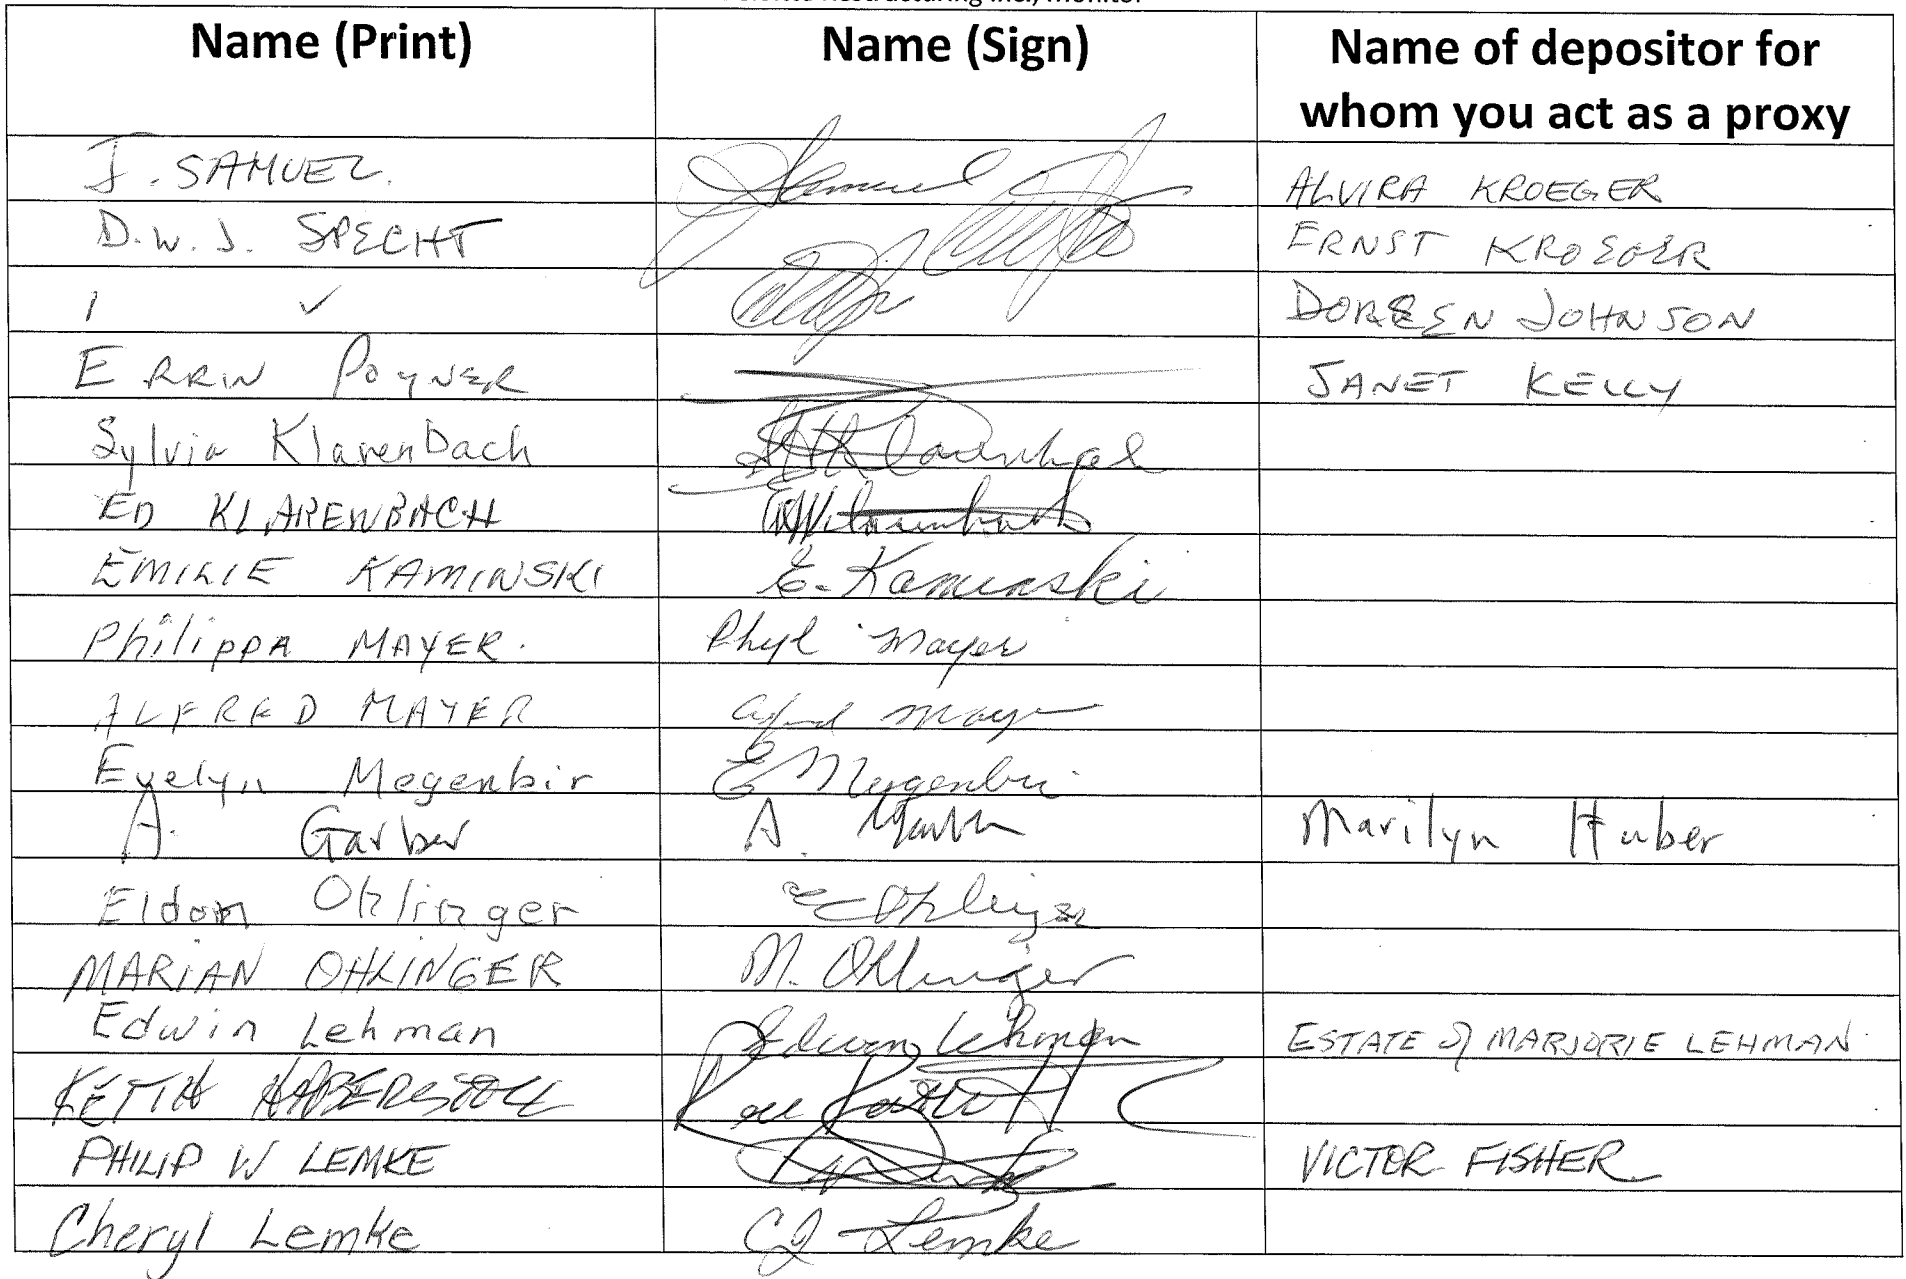 Restructuring Inc., Monitor
Name (Print) Name (Sign) Name of depositor for
whom you act as a proxy
J. SAMUEL. Samuel ALVIRA KROEGER
D.W.J. SPECHT ERNST KROEGER
1 ✓ DOREEN JOHNSON
ERRIN POYNER JANET KELLY
Sylvia Klarenbach Klarenbach
ED KLARENBACH
EMILIE KAMINSKI E. Kaminski
Philippa MAYER. Phyl Mayer
ALFRED MAYER Alfred Mayer
Evelyn Megenbir E Megenbir
A. Garber A. Garber Marilyn Huber
Eldon Ohlinger E Ohlinger
MARIAN OHLINGER M. Ohlinger
Edwin Lehman Edwin Lehman ESTATE of MARJORIE LEHMAN
KEITH HABERSTOCK
PHILIP W LEMKE VICTOR FISHER
Cheryl Lemke CJ Lemke